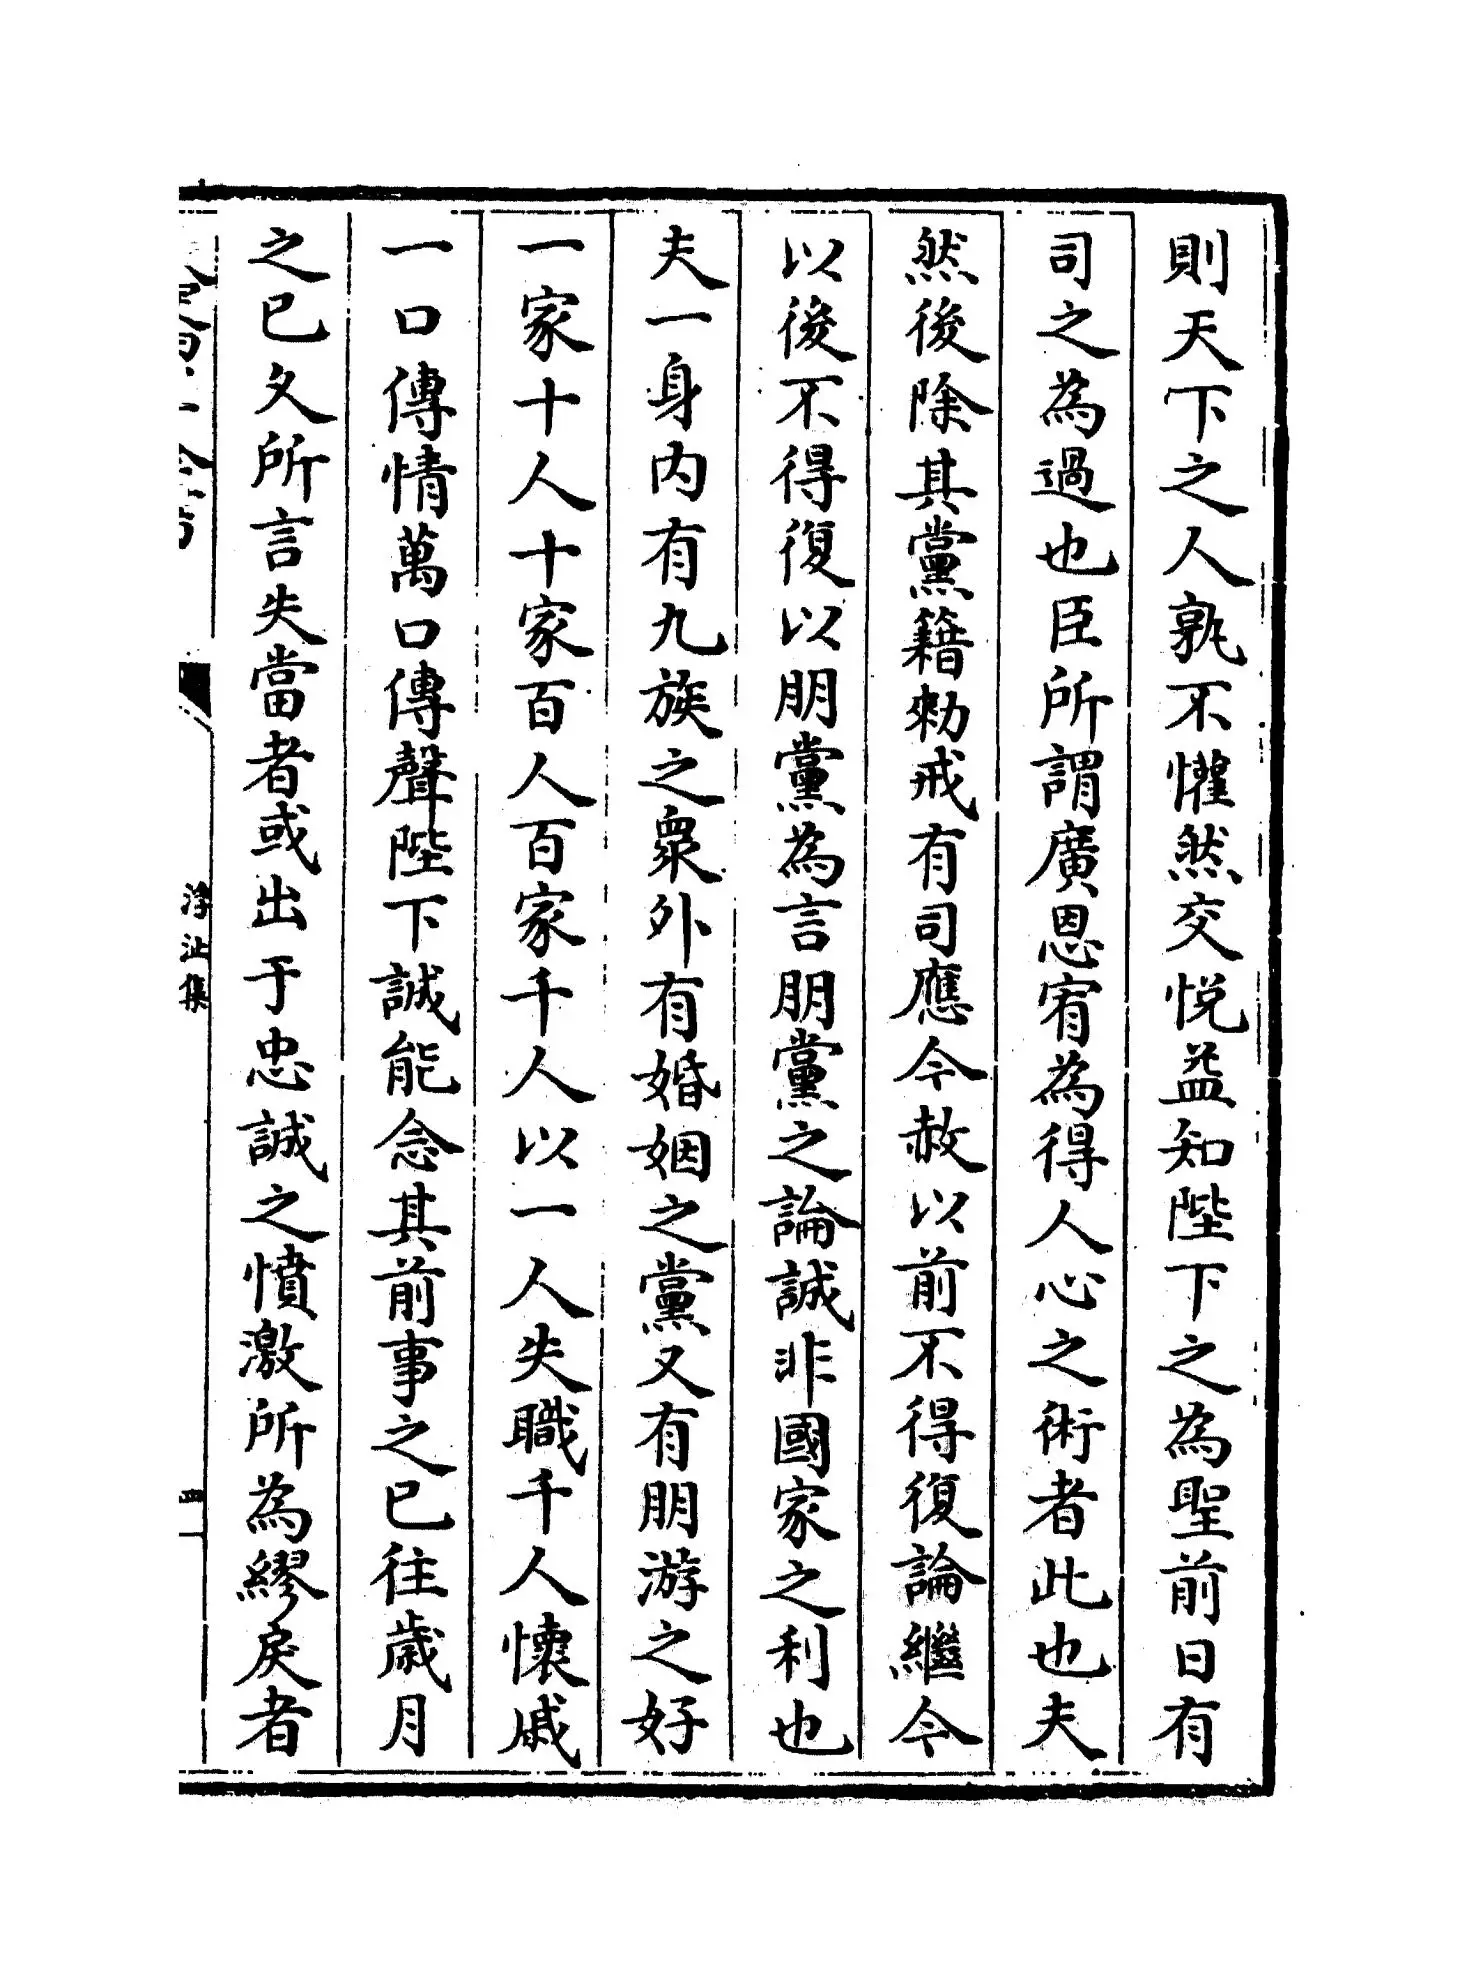 則天下之人孰不懽然交悦益知陛下之為聖前日有
司之為過也臣所謂廣恩宥為得人心之術者此也夫
然後除其黨籍勑戒有司應今赦以前不得復論繼今
以後不得復以朋黨為言朋黨之論誠非國家之利也
夫一身内有九族之衆外有婚姻之黨又有朋游之好
一家十人十家百人百家千人以一人失職千人懷戚
一口傳情萬口傳聲陛下誠能念其前事之已往歲月
之已久所言失當者或出于忠誠之憤激所為繆戾者
浮沚集